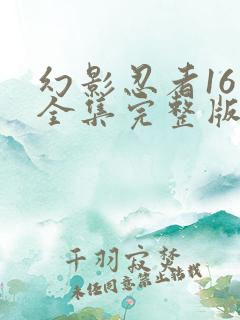 幻影忍者16
全集完整版
千羽寂梦
未经同意禁止转载